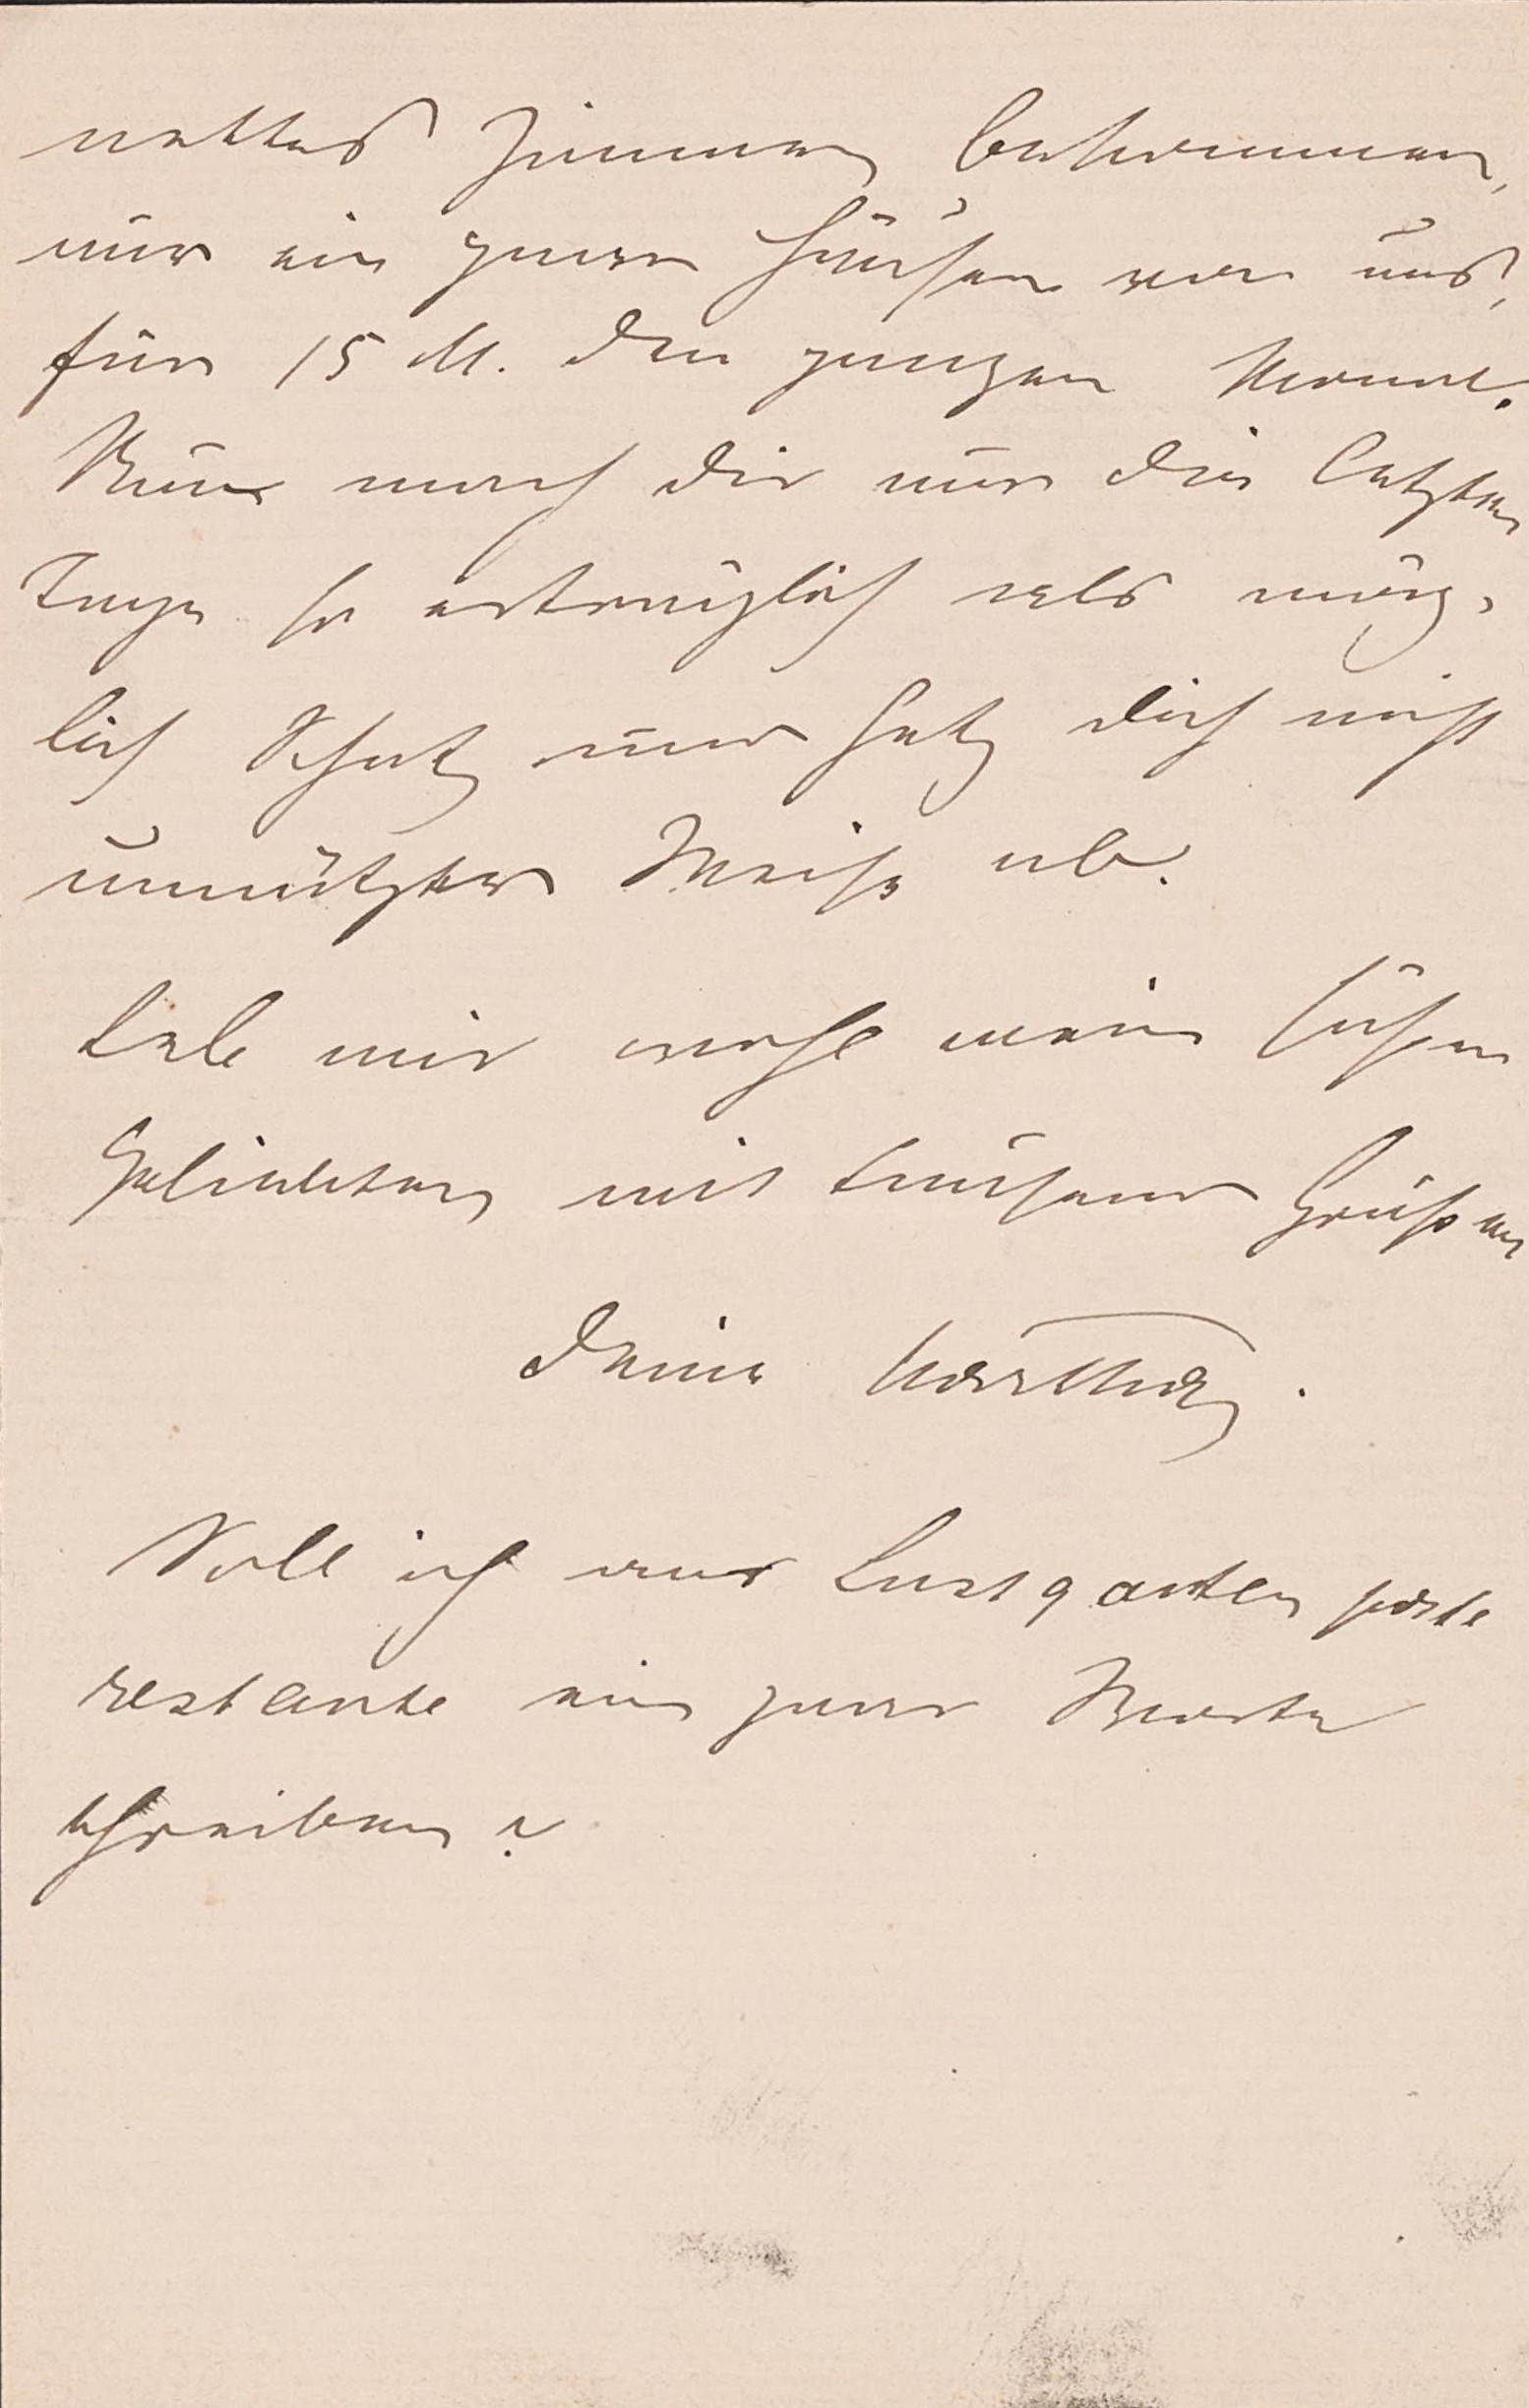 nettes Zimmer bekommen,
nur ein paar Häuser von uns,
für 15 M. den ganzen Monat.
Nun mach dir nur die letzten
Tage so erträglich als mög-
lich Schatz und hetz dich nicht
unnützer Weise ab.
Leb mir wohl mein süßer
Geliebter, mit tausend Grüßen
Deine Martha.
Soll ich nur Lustgarten poste
restante ein paar Worte
schreiben?